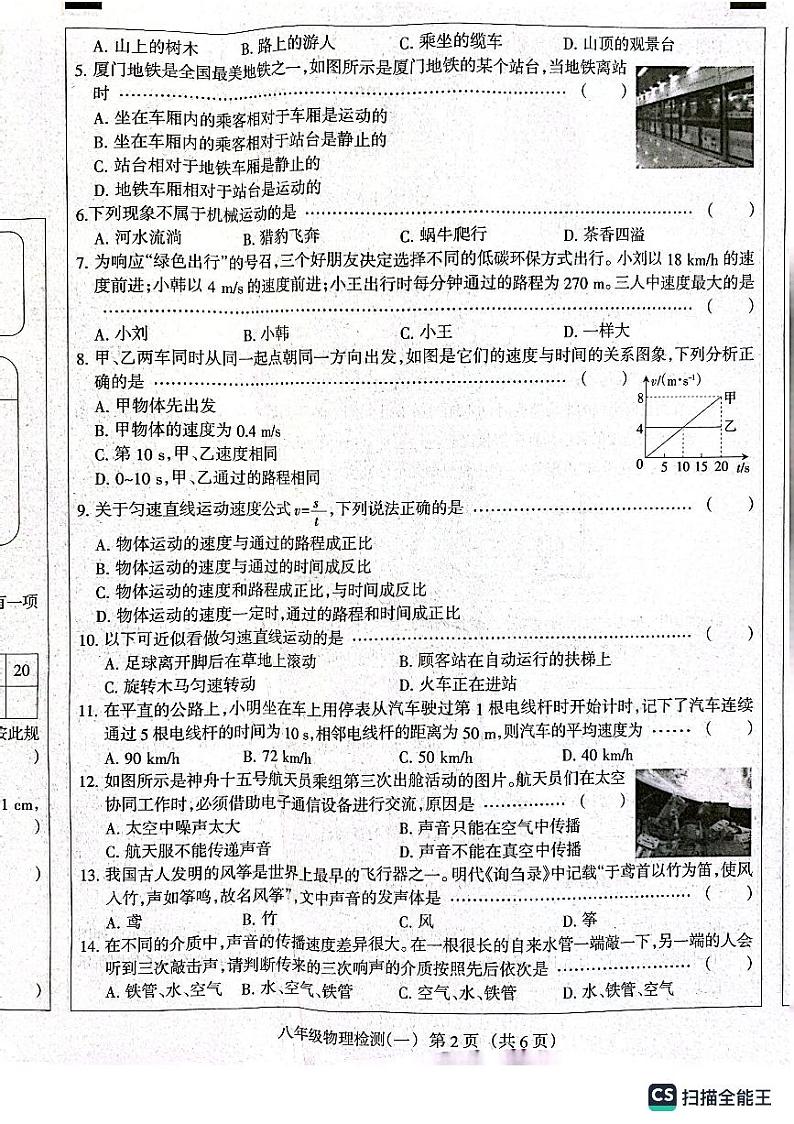 A. 山上的树木 B. 路上的游人 C. 乘坐的缆车 D. 山顶的观景台
5. 厦门地铁是全国最美地铁之一,如图所示是厦门地铁的某个站台,当地铁离站
时 …………………………………………………………… ( )
A. 坐在车厢内的乘客相对于车厢是运动的
B. 坐在车厢内的乘客相对于站台是静止的
C. 站台相对于地铁车厢是静止的
D. 地铁车厢相对于站台是运动的
6.下列现象不属于机械运动的是 …………………………………………………… ( )
A. 河水流淌 B. 猎豹飞奔 C. 蜗牛爬行 D. 茶香四溢
7. 为响应“绿色出行”的号召,三个好朋友决定选择不同的低碳环保方式出行。小刘以 18 km/h 的速
度前进;小韩以 4 m/s 的速度前进;小王出行时每分钟通过的路程为 270 m。三人中速度最大的是
…………………………………………………………………………………… ( )
A. 小刘 B. 小韩 C. 小王 D. 一样大
8. 甲、乙两车同时从同一起点朝同一方向出发,如图是它们的速度与时间的关系图象,下列分析正
确的是 ……………………………………………………… ( )
A. 甲物体先出发
B. 甲物体的速度为 0.4 m/s
C. 第 10 s,甲、乙速度相同
D. 0~10 s,甲、乙通过的路程相同
v/(m·s⁻¹)
8 甲
4 乙
0 5 10 15 20 t/s
9. 关于匀速直线运动速度公式 v=s/t,下列说法正确的是 …………………………… ( )
A. 物体运动的速度与通过的路程成正比
B. 物体运动的速度与通过的时间成反比
C. 物体运动的速度和路程成正比,与时间成反比
D. 物体运动的速度一定时,通过的路程和时间成正比
10. 以下可近似看做匀速直线运动的是 …………………………………………… ( )
A. 足球离开脚后在草地上滚动 B. 顾客站在自动运行的扶梯上
C. 旋转木马匀速转动 D. 火车正在进站
11. 在平直的公路上,小明坐在车上用停表从汽车驶过第 1 根电线杆时开始计时,记下了汽车连续
通过 5 根电线杆的时间为 10 s,相邻电线杆的距离为 50 m,则汽车的平均速度为 …… ( )
A. 90 km/h B. 72 km/h C. 50 km/h D. 40 km/h
12. 如图所示是神舟十五号航天员乘组第三次出舱活动的图片。航天员们在太空
协同工作时,必须借助电子通信设备进行交流,原因是 ………… ( )
A. 太空中噪声太大 B. 声音只能在空气中传播
C. 航天服不能传递声音 D. 声音不能在真空中传播
13. 我国古人发明的风筝是世界上最早的飞行器之一。明代《询刍录》中记载“于鸢首以竹为笛,使风
入竹,声如筝鸣,故名风筝”,文中声音的发声体是 ……………………………… ( )
A. 鸢 B. 竹 C. 风 D. 筝
14. 在不同的介质中,声音的传播速度差异很大。在一根很长的自来水管一端敲一下,另一端的人会
听到三次敲击声,请判断传来的三次响声的介质按照先后依次是 ……………… ( )
A. 铁管、水、空气 B. 水、空气、铁管 C. 空气、水、铁管 D. 水、铁管、空气
八年级物理检测(一) 第 2 页 (共 6 页)
有一项
20
按此规
)
1 cm,
)
)
)
CS 扫描全能王